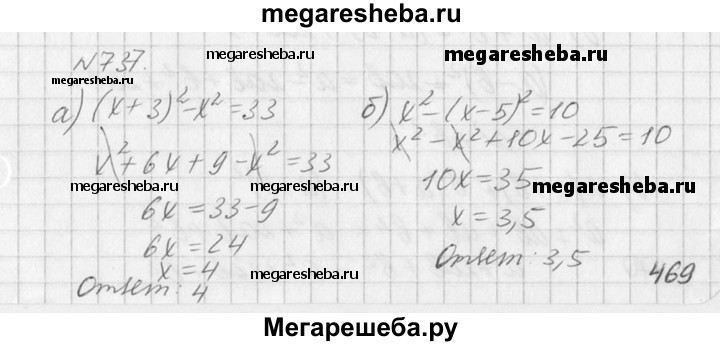 megaresheba.ru
№737.
megaresheba.ru
megaresheba.ru
megaresheba.ru
а) (x+3)²-x²=33
x²+6x+9-x²=33
megaresheba.ru
6x=33-9
6x=24
x=4
megaresheba.ru
Ответ: 4
б) x²-(x-5)²=10
x²-x²+10x-25=10
10x=35
megaresheba.ru
x=3,5
Ответ: 3,5
469
Мегарешеба.ру